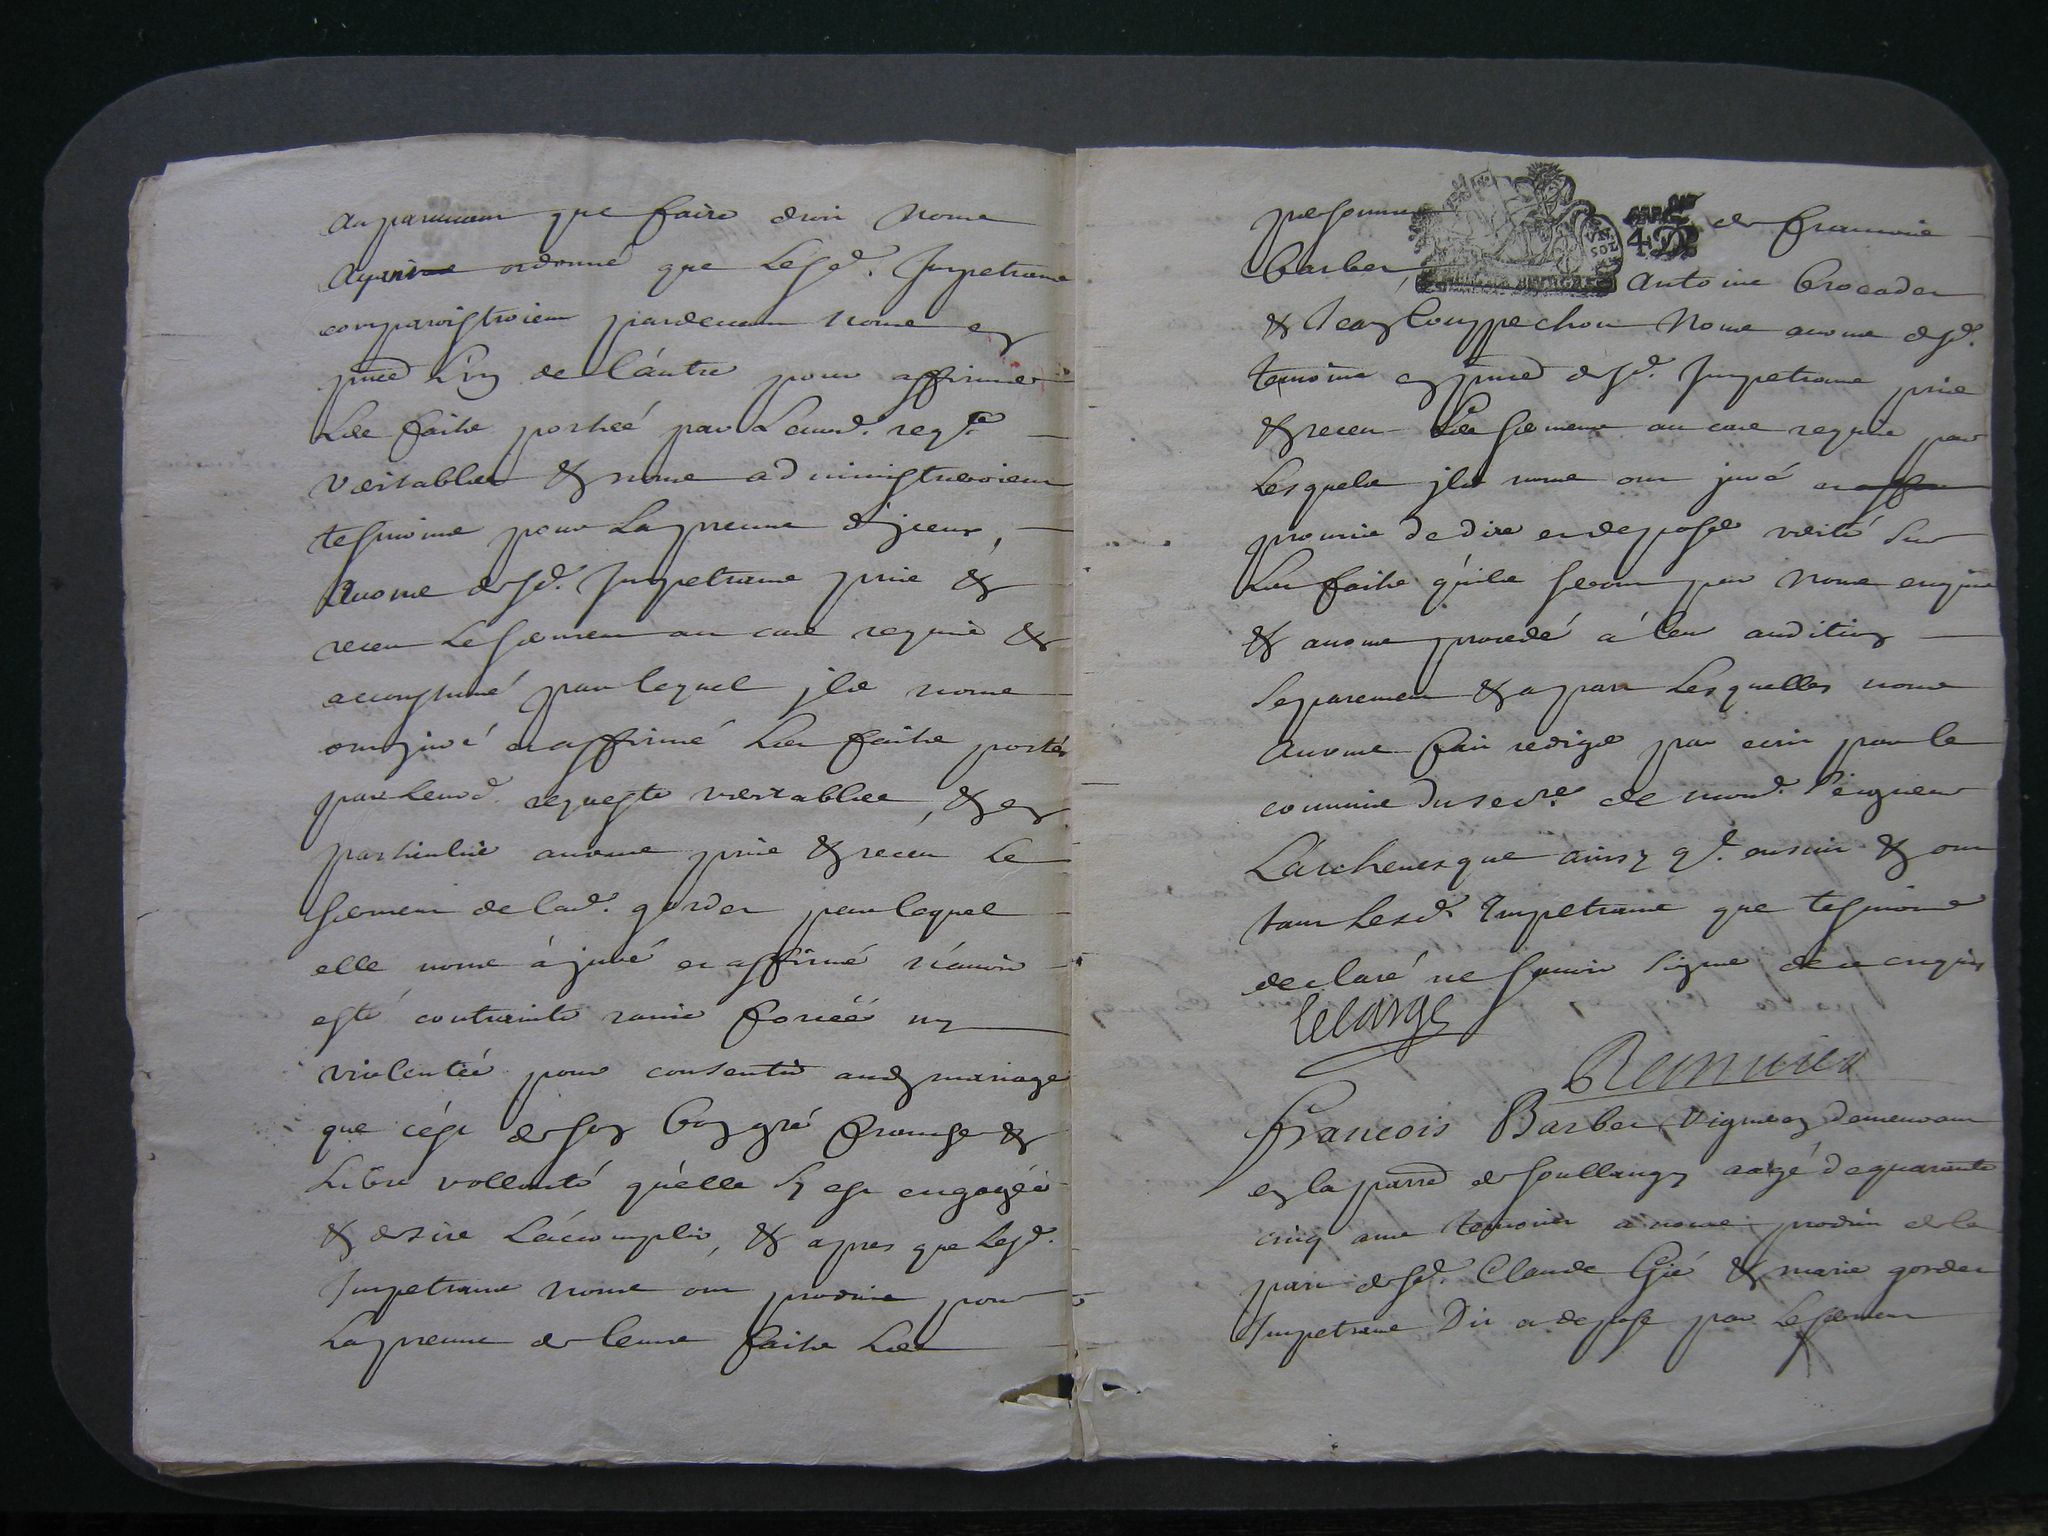 auparauant que faire droit nous
ayons ordonné que lesd. Impetrans
comparoistroient pardeuant nous en
pnce l'un de l'autre pour affirmer
les faits portéé par leurd. reqte
veritables & nous administreroient
tesmoins pour la preuue d'jceux,
Auons desd. Impetrans pris &
receu le serment au cas requis &
accoustumé par lequel jls nous
ont juré et affirmé les faits portés
par leurd. requeste veritables, & en
particulier auons pris & receu le
serment de lad. gordet par lequel
elle nous à juré et affirmé n'auoir
esté contrainte rauie forcéé ny
violentéé pour consentir aud mariage
que c'est de son bon gré franche &
libre vollonté qu'elle s'y est engagéé
& desire l'accomplir, & apres que lesd.
Impetrans nous ont produit pour
la preuue de leurs faits les
personnes de francois
Barbet, Antoine Crocadet
& Jean nous auons desd.
temoins en pnce desd. Impetrans pris
& receu les serment au cas requis par
lesquels jls nous ont juré et
promis de dire et deposer verité sur
les faits qu'ils seront par nous enquis
& auons procedé à leur audition
separement & a part lesquelles nous
auons fait rediger par ecrit par le
commis du secre. de mond. seigneur
L'archeuesque ainsy q. ensuit & ont
tant lesd. Impetrans que tesmoins
declaré ne scauoir signer de ce enquis
lelarge
Francois Barbet vigneron demeurant
en la parr de soullangy aagé de quarante
cinq ans temoin a nous produit de la
part desd. Claude Gié & marie gordet
Impetrans Dit et depose par le serment
VN
SOL
4.D